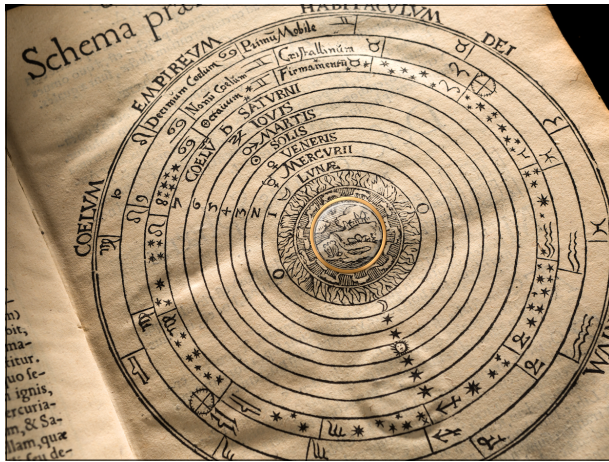 Schema
COELVM EMPIREVM HABITACVLVM DEI
Decimum Coelum Primũ Mobile
Nonũ Coelum Cristallinũm
Octauum Firmamentũ
COELV SATVRNI
IOVIS
MARTIS
SOLIS
VENERIS
MERCVRII
LVNÆ
bit,
ma-
titur.
quo se-
ignis,
ercuria-
m, & Sa-
llam, quæ